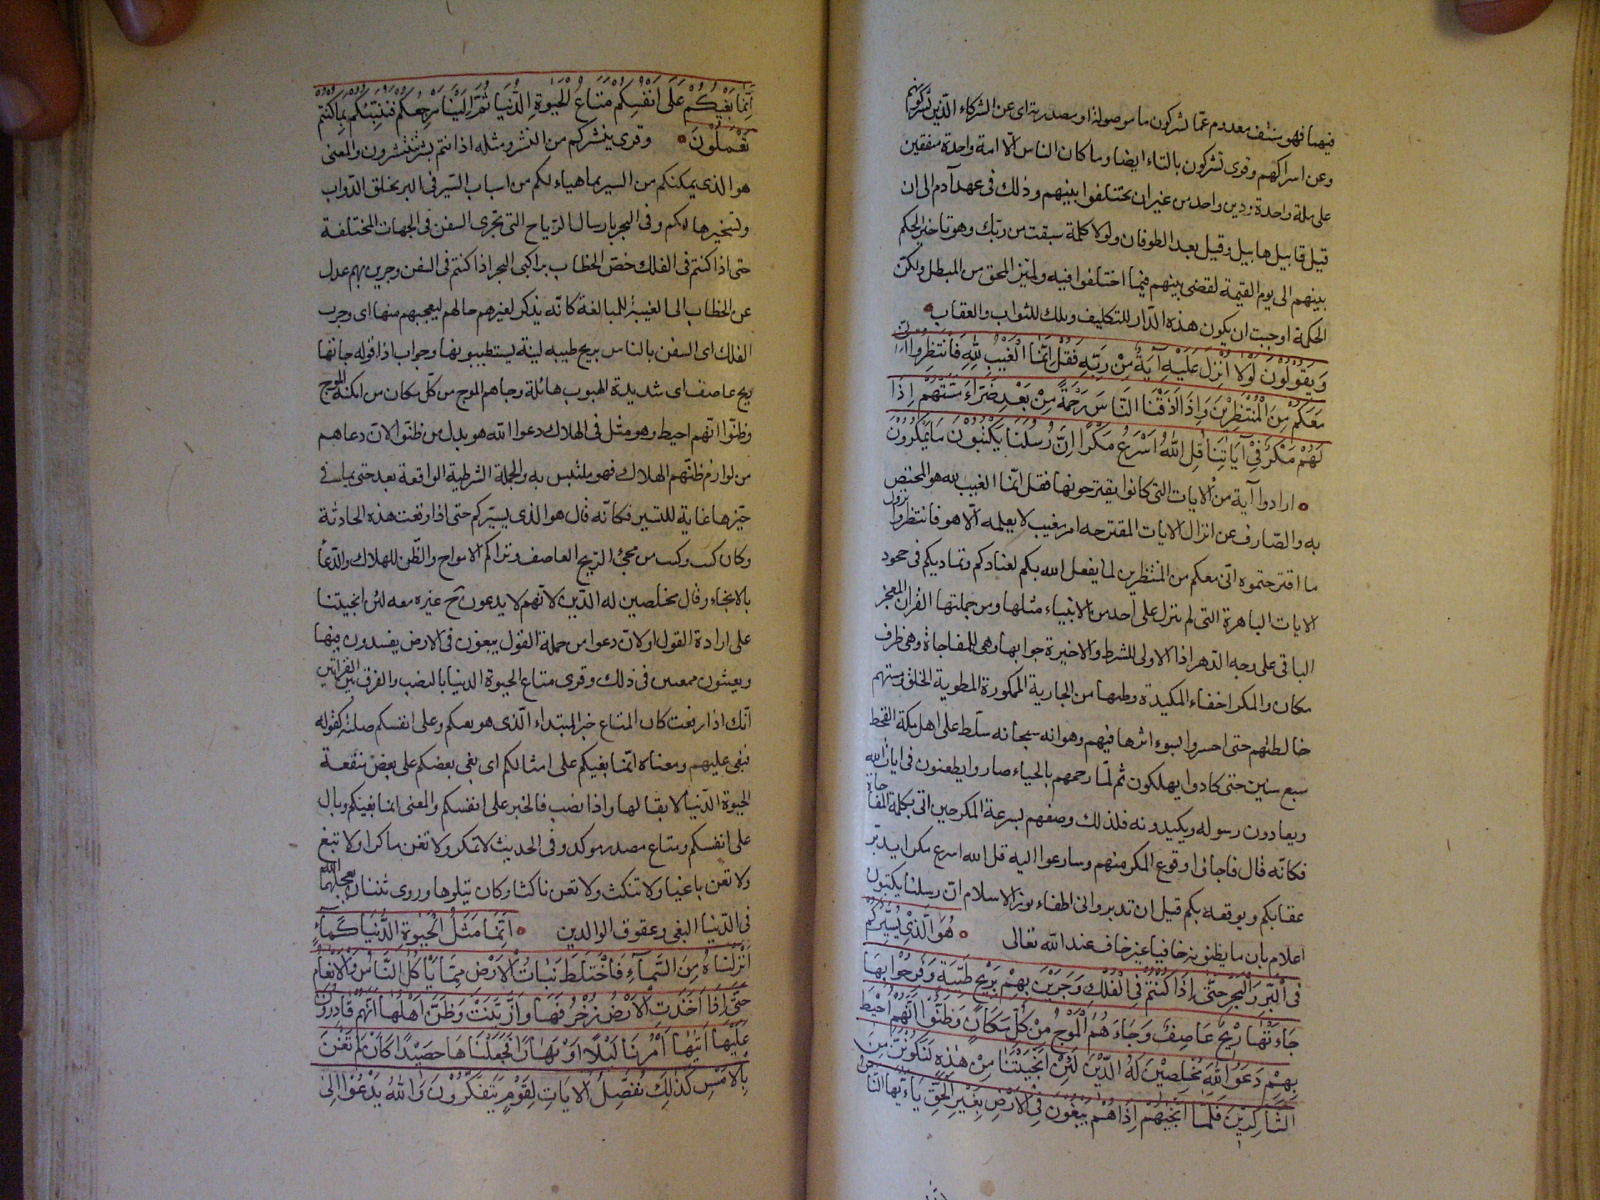 فيهما فهو منتف معدوم عمّا يشركون ما موصولة او مصدرية اى عن الشركاء الّذين تشركونهم
وعن اشراكهم وقرى تشركون بالتاء ايضا وما كان الناس الا امة واحدة متفقين
على ملة واحدة ودين واحد من غير ان يختلفوا بينهم وذلك فى عهد آدم الى ان
قتل قابيل هابيل وقيل بعد الطوفان ولولا كلمة سبقت من ربّك وهو تاخير الحكم
بينهم الى يوم القيمة لقضى بينهم فيما اختلفوا فيه ولميّز المحق من المبطل ولكن
الحكمة اوجبت ان يكون هذه الدّار للتكليف وتلك للثواب والعقاب
وَيَقُولُونَ لَوْلَا اُنْزِلَ عَلَيْهِ آيَةٌ مِنْ رَبِّهِ فَقُلْ اِنَّمَا الْغَيْبُ لِلّهِ فَانْتَظِرُوا اِنِّى
مَعَكُمْ مِنَ الْمُنْتَظِرِينَ وَاِذَا اَذَقْنَا النَّاسَ رَحْمَةً مِنْ بَعْدِ ضَرَّاءَ مَسَّتْهُمْ اِذَا
لَهُمْ مَكْرٌ فِى آيَاتِنَا قُلِ اللهُ اَسْرَعُ مَكْرًا اِنَّ رُسُلَنَا يَكْتُبُونَ مَا تَمْكُرُونَ
ارادوا آية من الايات التى كانوا يقترحونها فقل انّما الغيب لله هو المختص
به والصّارف عن انزال الايات المقترحه امر مغيب لا يعلمه الّا هو فانتظروا نزول
ما اقترحتموه انّى معكم من المنتظرين لما يفعل الله بكم لعنادكم وتماديكم فى جحود
الايات الباهرة التى لم ينزل على احد من الانبياء مثلها ومن جملتها القران المعجز
الباقى على وجه الدّهر اذا الاولى للشرط والاخيرة جوابها وهى للمفاجاة وهى ظرف
مكان والمكر اخفاء المكيدة وطيها من الجارية الممكورة المطوية الخلق مستهم
خالطتهم حتى احسوا بسوء اثرها فيهم وهو انه سبحانه سلّط على اهل مكة القحط
سبع سنين حتى كادوا يهلكون ثم لمّا رحمهم بالحياء صاروا يطعنون فى ايات الله
ويعادون رسوله ويكيدونه فلذلك وصفهم بسرعة المكر حين اتى بكلمة المفاجاة
فكانّه قال فاجاؤا وقوع المكر منهم وسارعوا اليه قل الله اسرع مكرا يدبّر
عقابكم ويوقعه بكم قبل ان تدبروا فى اطفاء نور الاسلام ان رسلنا يكتبون
اعلام بان ما يظنونه خافيا غير خاف عند الله تعالى هُوَ الَّذِى يُسَيِّرُكُمْ
فِى الْبَرِّ وَالْبَحْرِ حَتَّى اِذَا كُنْتُمْ فِى الْفُلْكِ وَجَرَيْنَ بِهِمْ بِرِيحٍ طَيِّبَةٍ وَفَرِحُوا بِهَا
جَاءَتْهَا رِيحٌ عَاصِفٌ وَجَاءَهُمُ الْمَوْجُ مِنْ كُلِّ مَكَانٍ وَظَنُّوا اَنَّهُمْ اُحِيطَ
بِهِمْ دَعَوُا اللهَ مُخْلِصِينَ لَهُ الدِّينَ لَئِنْ اَنْجَيْتَنَا مِنْ هٰذِهِ لَنَكُونَنَّ مِنَ
الشَّاكِرِينَ فَلَمَّا اَنْجَيهُمْ اِذَا هُمْ يَبْغُونَ فِى الْاَرْضِ بِغَيْرِ الْحَقِّ يَا اَيُّهَا النَّاسُ
اِنَّمَا بَغْيُكُمْ عَلَى اَنْفُسِكُمْ مَتَاعُ الْحَيٰوةِ الدُّنْيَا ثُمَّ اِلَيْنَا مَرْجِعُكُمْ فَنُنَبِّئُكُمْ بِمَا كُنْتُمْ
تَعْمَلُونَ وقرى ينشركم من النشر ومثله اذا انتم بشر تنتشرون والمعنى
هو الذى يمكنكم من السير بما هياء لكم من اسباب السّير فى البر بخلق الدّواب
وتسخيرها لكم وفى البحر بارسال الرّياح التى تجرى السفن فى الجهات المختلفة
حتى اذا كنتم فى الفلك خصّ الخطاب براكبى البحر اذا كنتم فى السفن وجرين بهم عدل
عن الخطاب الى الغيبة للمبالغة كانّه يذكر لغيرهم حالهم ليعجبهم منها اى وجرت
الفلك اى السفن بالناس بريح طيبه لينة يستطيبونها وجواب اذا قوله جاتها
ريح عاصف اى شديدة الهبوب هائلة وجاهم الموج من كلّ مكان من امكنة الموج
وظنّوا انّهم احيط وهو مثل فى الهلاك دعوا الله هو بدل من ظنّوا لانّ دعاهم
من لوازم ظنّهم الهلاك فهو ملتبس به والجملة الشرطية الواقعة بعد حتى بما فى
حيّزها غاية للتسير فكانّه قال هو الذى يسيّركم حتى اذا وقعت هذه الحادثة
وكان كيت وكيت من مجئ الرّيح العاصف وتراكم الامواج والظّن للهلاك والدّعا
بالانجاء وقال مخلصين له الدّين لانّهم لا يدعون ح غيره معه لئن انجيتنا
على ارادة القول او لان دعوا من جملة القول يبغون فى الارض يفسدون فيها
ويعيثون ممعنين فى ذلك وقرى متاع الحيوة الدنيا بالنصب والفرق بين القراتين
انّك اذا رفعت كان المتاع خبر المبتداء الّذى هو بغيكم وعلى انفسكم صلته كقوله
فبغى عليهم ومعناه انّما بغيكم على امثالكم اى بغى بعضكم على بعض منفعة
الحيوة الدّنيا لا بقا لها واذا نصب فالخبر على انفسكم والمعنى انما بغيكم وبال
على انفسكم ومتاع مصدر موكد وفى الحديث لا تمكر ولا تعن ماكرا ولا تبغ
ولا تعن باغيا ولا تنكث ولا تعن ناكثا وكان يتلوها وروى ثنتان يعجلهما الله
فى الدّنيا البغى وعقوق الوالدين اِنَّمَا مَثَلُ الْحَيٰوةِ الدُّنْيَا كَمَاءٍ
اَنْزَلْنَاهُ مِنَ السَّمَاءِ فَاخْتَلَطَ بِهِ نَبَاتُ الْاَرْضِ مِمَّا يَأْكُلُ النَّاسُ وَالْاَنْعَامُ
حَتَّى اِذَا اَخَذَتِ الْاَرْضُ زُخْرُفَهَا وَازَّيَّنَتْ وَظَنَّ اَهْلُهَا اَنَّهُمْ قَادِرُونَ
عَلَيْهَا اَتَيهَا اَمْرُنَا لَيْلًا اَوْ نَهَارًا فَجَعَلْنَاهَا حَصِيدًا كَاَنْ لَمْ تَغْنَ
بِالْاَمْسِ كَذٰلِكَ نُفَصِّلُ الْايَاتِ لِقَوْمٍ يَتَفَكَّرُونَ وَاللهُ يَدْعُوا اِلىٰ